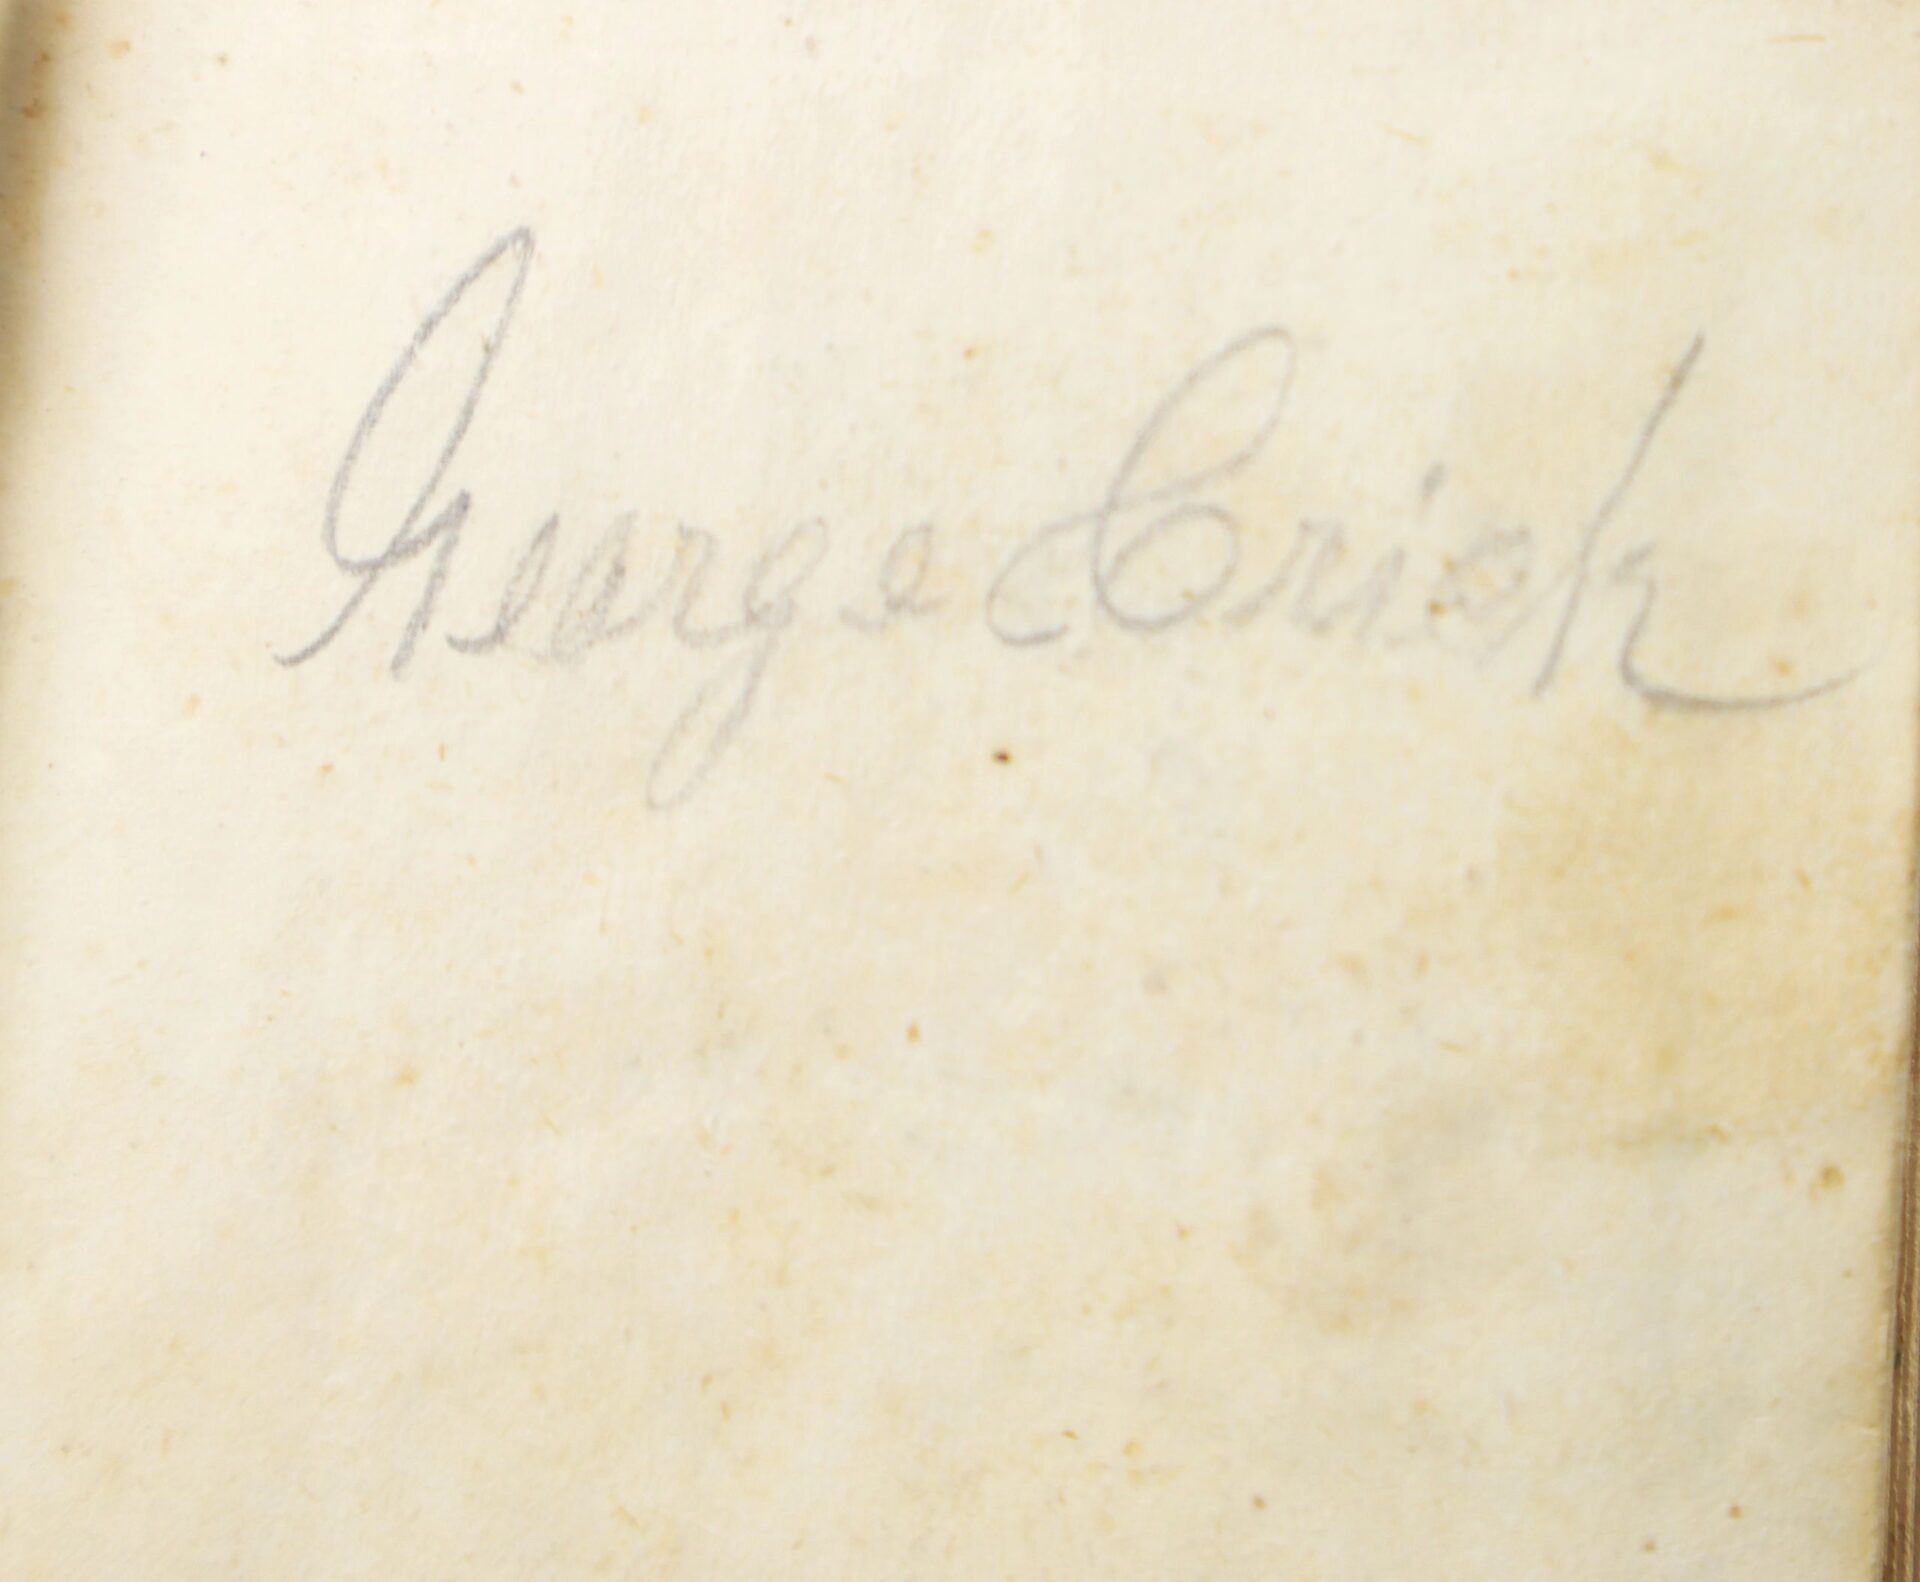 George Crick